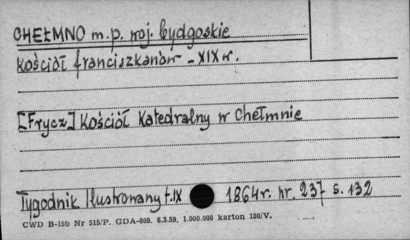 CHEŁMNO m.p. woj. bydgoskie
Kościół franciszkanów - XIX w.
[Frycz] Kościół Katedralny w Chełmnie
Tygodnik Ilustrowany t.IX 1864r. nr. 237 s. 132
CWD B-15b Nr 515/P. GDA-609. 6.3.59. 1.000.000 karton 180/V.